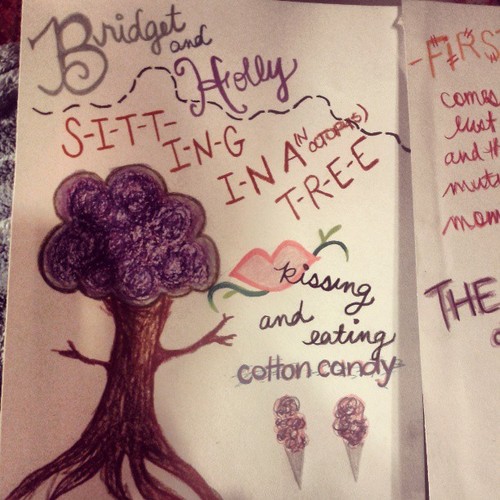 Bridget
and
Holly
S-I-T-T-
I-N-G
I-N A (IN
OCTOPUS)
T-R-E-E
kissing
and
eating
cotton candy
-FIRST
comes
lust
and th
mutu
mom
THE